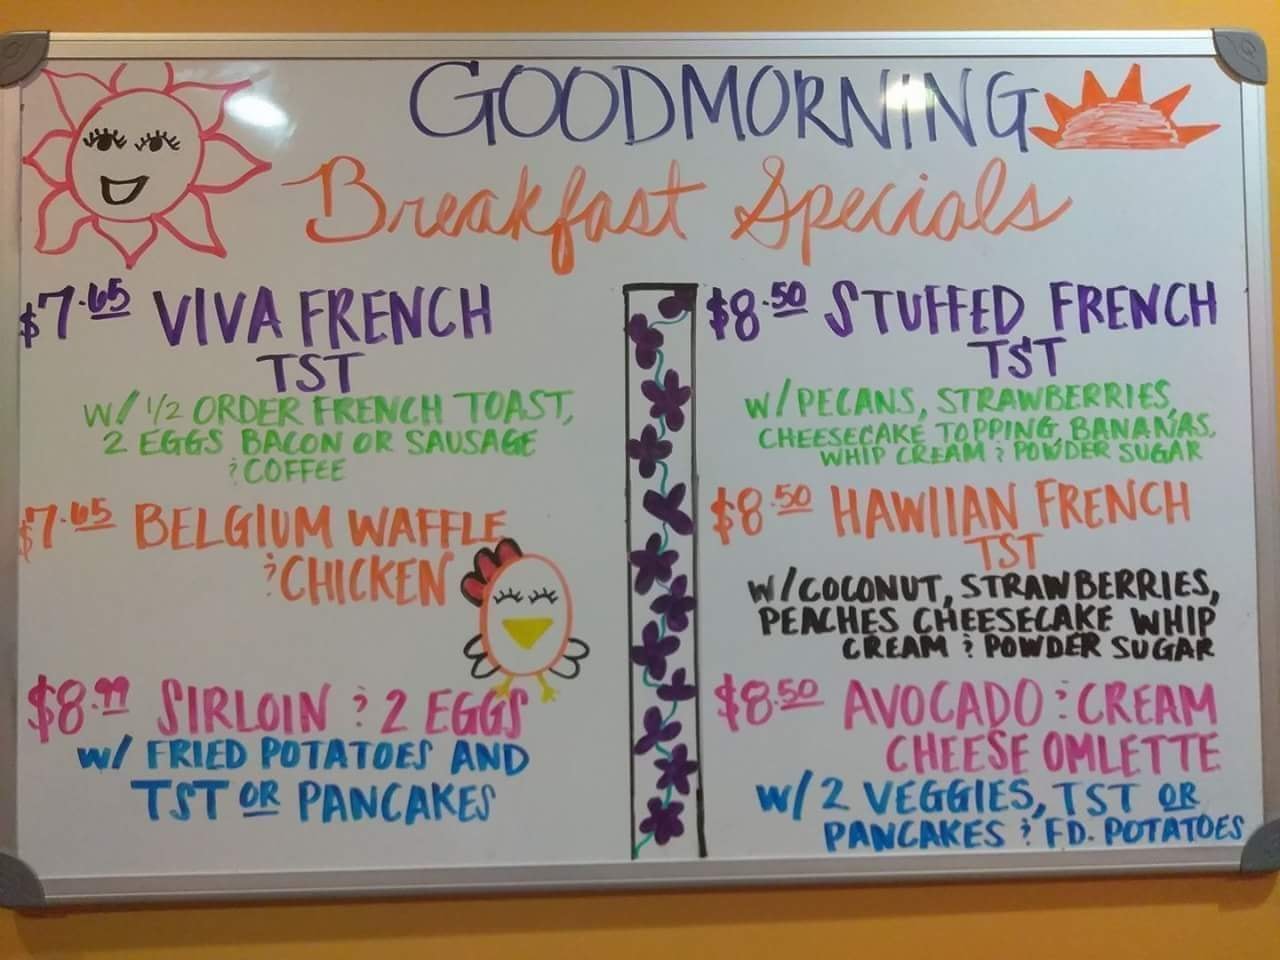 GOODMORNING
Breakfast Specials
$7.65 VIVA FRENCH
TST
W/ 1/2 ORDER FRENCH TOAST,
2 EGGS BACON OR SAUSAGE
& COFFEE
$7.65 BELGIUM WAFFLE
& CHICKEN
$8.99 SIRLOIN & 2 EGGS
W/ FRIED POTATOES AND
TST OR PANCAKES
$8.50 STUFFED FRENCH
TST
W/PECANS, STRAWBERRIES,
CHEESECAKE TOPPING, BANANAS,
WHIP CREAM & POWDER SUGAR
$8.50 HAWIIAN FRENCH
TST
W/COCONUT, STRAWBERRIES,
PEACHES CHEESECAKE WHIP
CREAM & POWDER SUGAR
$8.50 AVOCADO & CREAM
CHEESE OMLETTE
W/ 2 VEGGIES, TST OR
PANCAKES & FD. POTATOES